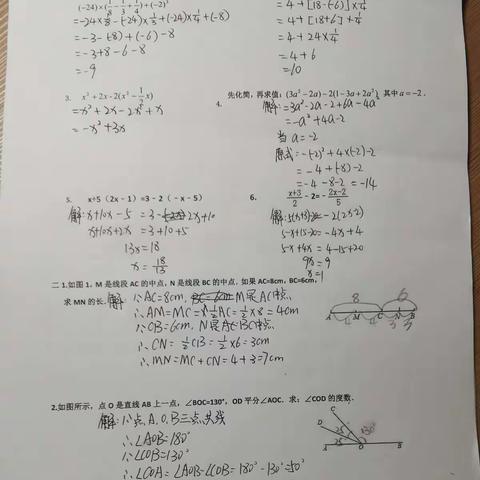 (-24)×(1/8-1/3+1/4)+(-2)³
=-24×1/8-(-24)×1/3+(-24)×1/4+(-8)
=-3-(-8)+(-6)-8
=-3+8-6-8
=-9
=4+[18-(-6)]×1/4
=4+[18+6]×1/4
=4+24×1/4
=4+6
=10
3. x²+2x-2(x²-1/2x)
=x²+2x-2x²+x
=-x²+3x
4. 先化简，再求值：(3a²-2a)-2(1-3a+2a²)，其中a=-2．
解:=3a²-2a-2+6a-4a²
=-a²+4a-2
当a=-2
原式=-(-2)²+4×(-2)-2
=-4+(-8)-2
=-4-8-2=-14
5. x+5（2x-1）=3-2（-x-5）
解:x+10x-5=3+2x+10
x+10x-2x=3+10+5
13x=18
x=18/13
6. (x+3)/2-2=-(2x-2)/5
解:5(x+3)-20=-2(2x-2)
5x+15-20=-4x+4
5x+4x=4-15+20
9x=9
x=1
二 1.如图1，M是线段AC的中点，N是线段BC的中点，如果AC=8cm，BC=6cm，
求MN的长．解:∵AC=8cm, M是AC中点
∴AM=MC=1/2AC=1/2×8=4cm
∵CB=6cm, N是BC中点
∴CN=1/2CB=1/2×6=3cm
∴MN=MC+CN=4+3=7cm
8 6
A M C N B
4 4 3 3
2.如图所示，点O是直线AB上一点，∠BOC=130°，OD平分∠AOC．求：∠COD的度数．
解:∵点A、O、B三点共线
∴∠AOB=180°
∵∠COB=130°
∴∠COA=∠AOB-∠COB=180°-130°=50°
C
D
25 25 130°
A O B